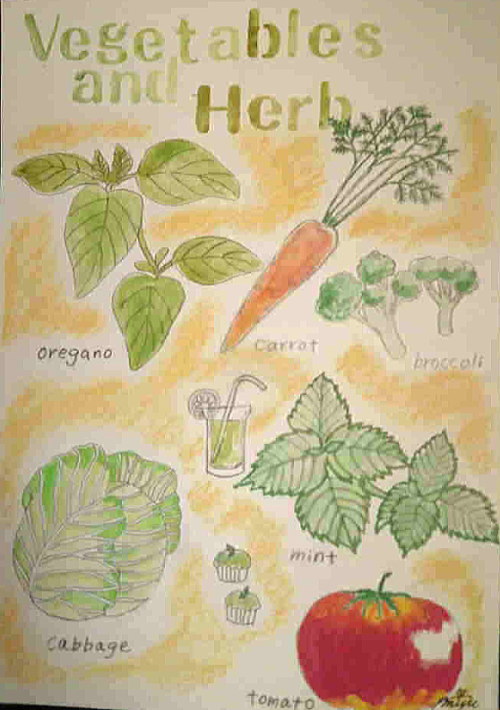 Vegetables
and
Herb
oregano
carrot
broccoli
mint
cabbage
tomato